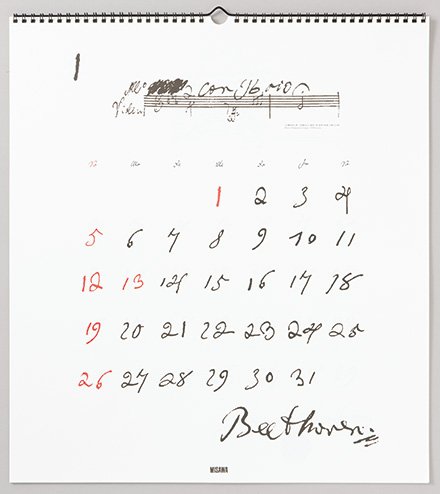 1
Allo con brio
Violini
1 2 3 4
5 6 7 8 9 10 11
12 13 14 15 16 17 18
19 20 21 22 23 24 25
26 27 28 29 30 31
Beethoven
MISAWA